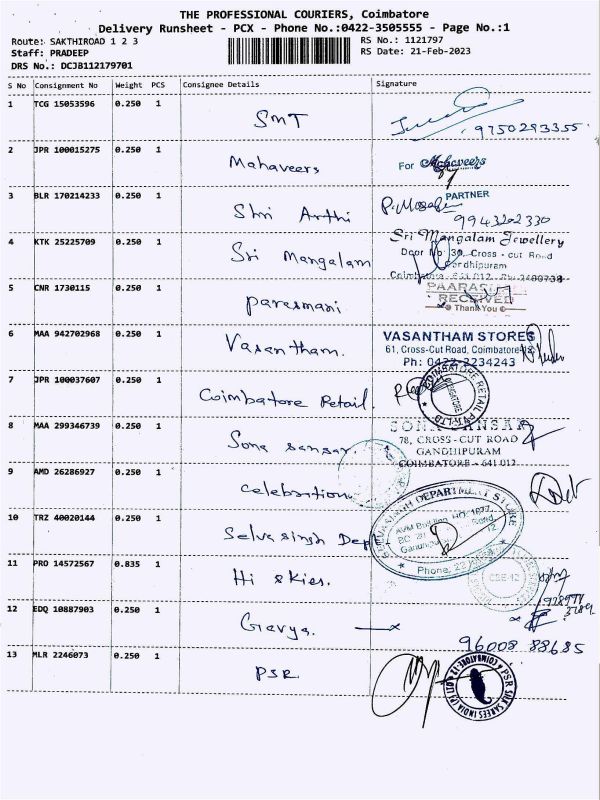 THE PROFESSIONAL COURIERS, Coimbatore
Delivery Runsheet - PCX - Phone No.:0422-3505555 - Page No.:1
Route: SAKTHIROAD 1 2 3
Staff: PRADEEP
DRS No.: DCJB112179701
RS No.: 1121797
RS Date: 21-Feb-2023
S No Consignment No Weight PCS Consignee Details Signature
1 TCG 15053596 0.250 1 SMT 9750293355
2 JPR 100015275 0.250 1 Mahaveers For Mahaveers
PARTNER
3 BLR 170214233 0.250 1 Shri Arthi 9943202330
4 KTK 25225709 0.250 1 Sri Mangalam Sri Mangalam Jewellery
Door No 30, Cross - cut Road
Gandhipuram
5 CNR 1730115 0.250 1 Paresmani
RECEIVED
Thank You
6 MAA 942702968 0.250 1 Vasantham. VASANTHAM STORES
61, Cross-Cut Road, Coimbatore-12
Ph: 0422-2234243
7 JPR 100037607 0.250 1 Coimbatore Retail. COIMBATORE RETAIL PVT. LTD
COIMBATORE
8 MAA 299346739 0.250 1 Sona sansar. SONA SANSAR
78, CROSS - CUT ROAD
GANDHIPURAM
COIMBATORE - 641 012
9 AMD 26286927 0.250 1 celebration
10 TRZ 40020144 0.250 1 Selvasingh Dept SELVASINGH DEPARTMENT STORE
AVM Building
Phone
11 PRO 14572567 0.835 1 Hi skies. CBE-12
12 EDQ 10887903 0.250 1 Gavya.
96008 88685
13 MLR 2246073 0.250 1 PSR PSR SILK SAREES INDIA (P) LTD COIMBATORE-12